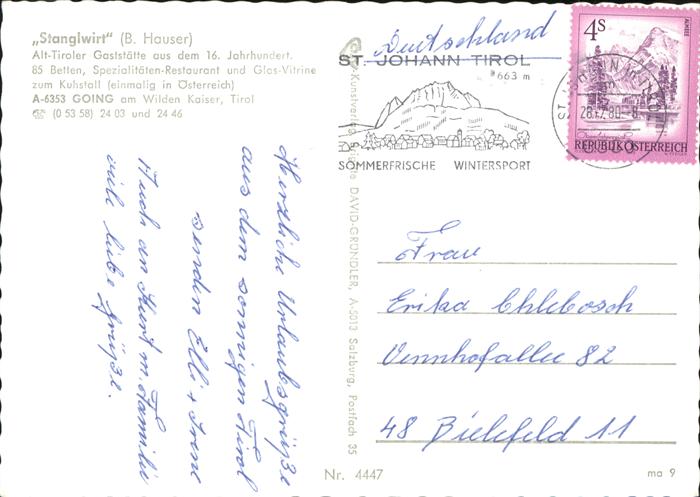 „Stanglwirt“ (B. Hauser)
Alt-Tiroler Gaststätte aus dem 16. Jahrhundert.
85 Betten, Spezialitäten-Restaurant und Glas-Vitrine
zum Kuhstall (einmalig in Österreich)
A-6353 GOING am Wilden Kaiser, Tirol
☎ (0 53 58) 24 03 und 24 46
Herzliche Urlaubsgrüße
aus dem sonnigen Tirol
senden Elli + Irene
Auch an Kurt m. Familie
viele liebe Grüße.
-Kunstverlag Brigitte DAVID-GRÜNDLER, A-5013 Salzburg, Postfach 35
Deutschland
ST. JOHANN TIROL
663 m
SOMMERFRISCHE WINTERSPORT
4S
ALMSEE
REPUBLIK ÖSTERREICH
ST. JOHANN IN TIROL
Frau
Erika Chlebosch
Vennhofallee 82
48 Bielefeld 11
Nr. 4447
ma 9